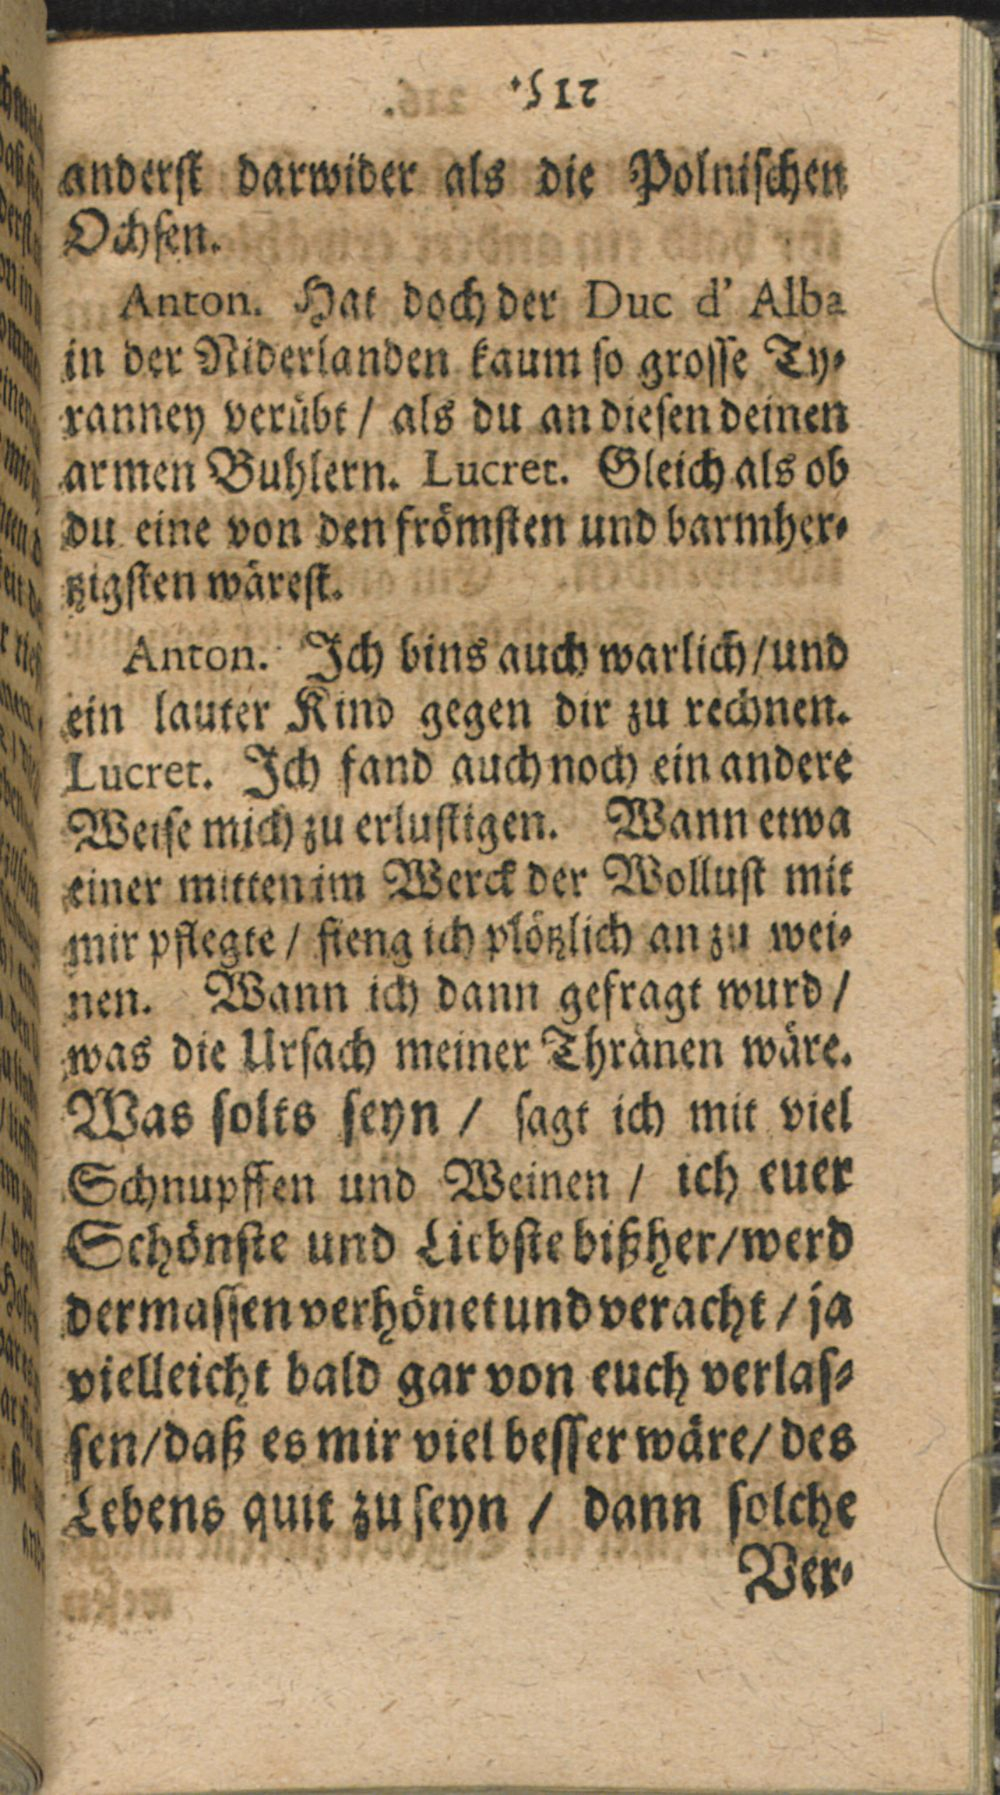 215.
anderst darwider als die Polnischen
Ochsen.
Anton. Hat doch der Duc d' Alba
in der Niderlanden kaum so grosse Ty-
ranney verübt / als du an diesen deinen
armen Buhlern. Lucret. Gleich als ob
du eine von den frömsten und barmher-
tzigsten wärest.
Anton. Ich bins auch warlich / und
ein lauter Kind gegen dir zu rechnen.
Lucret. Ich fand auch noch ein andere
Weise mich zu erlustigen. Wann etwa
einer mitten im Werck der Wollust mit
mir pflegte / fieng ich plötzlich an zu wei-
nen. Wann ich dann gefragt wurd /
was die Ursach meiner Thränen wäre.
Was solts seyn / sagt ich mit viel
Schnupffen und Weinen / ich euer
Schönste und Liebste bißher / werd
dermassen verhönet und veracht / ja
vielleicht bald gar von euch verlas-
sen / daß es mir viel besser wäre / des
Lebens quit zu seyn / dann solche
Ver-